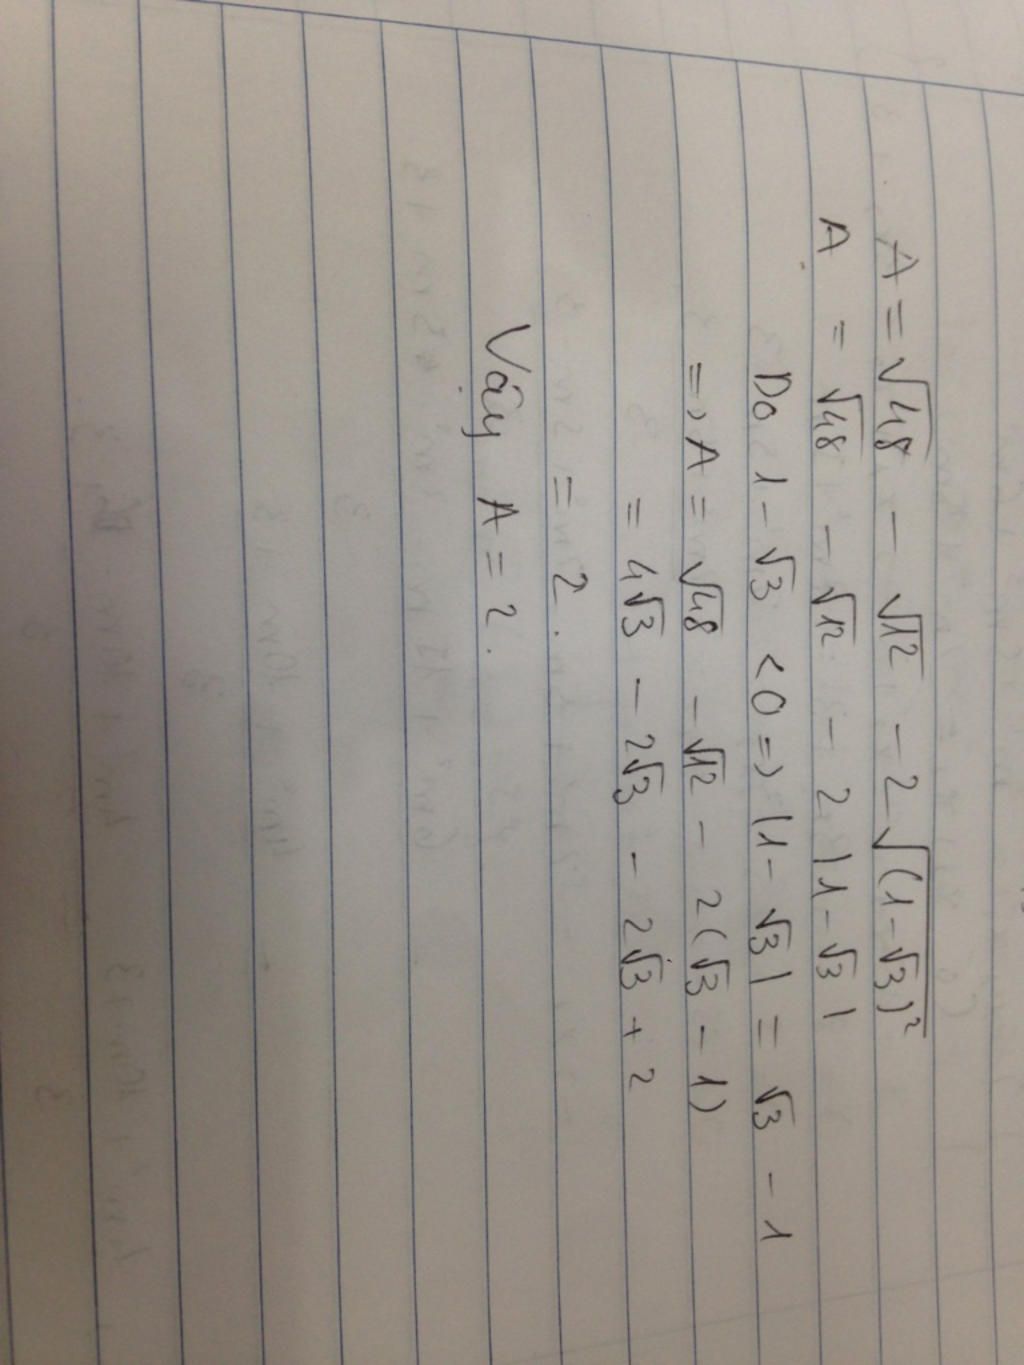 A = √48 - √12 - 2√(1-√3)²
A = √48 - √12 - 2|1-√3|
Do 1-√3 < 0 => |1-√3| = √3 - 1
=> A = √48 - √12 - 2(√3 - 1)
= 4√3 - 2√3 - 2√3 + 2
= 2.
Vậy A = 2.